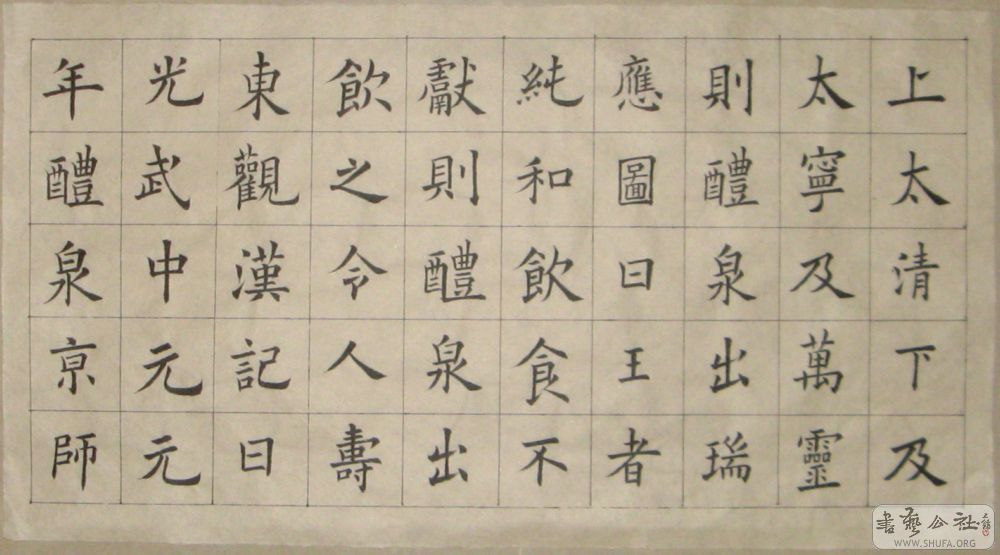 上太清下及
太寧及萬靈
則醴泉出瑞
應圖曰王者
純和飲食不
獻則醴泉出
飲之令人壽
東觀漢記曰
光武中元元
年醴泉京師
書藝公社
WWW.SHUFA.ORG